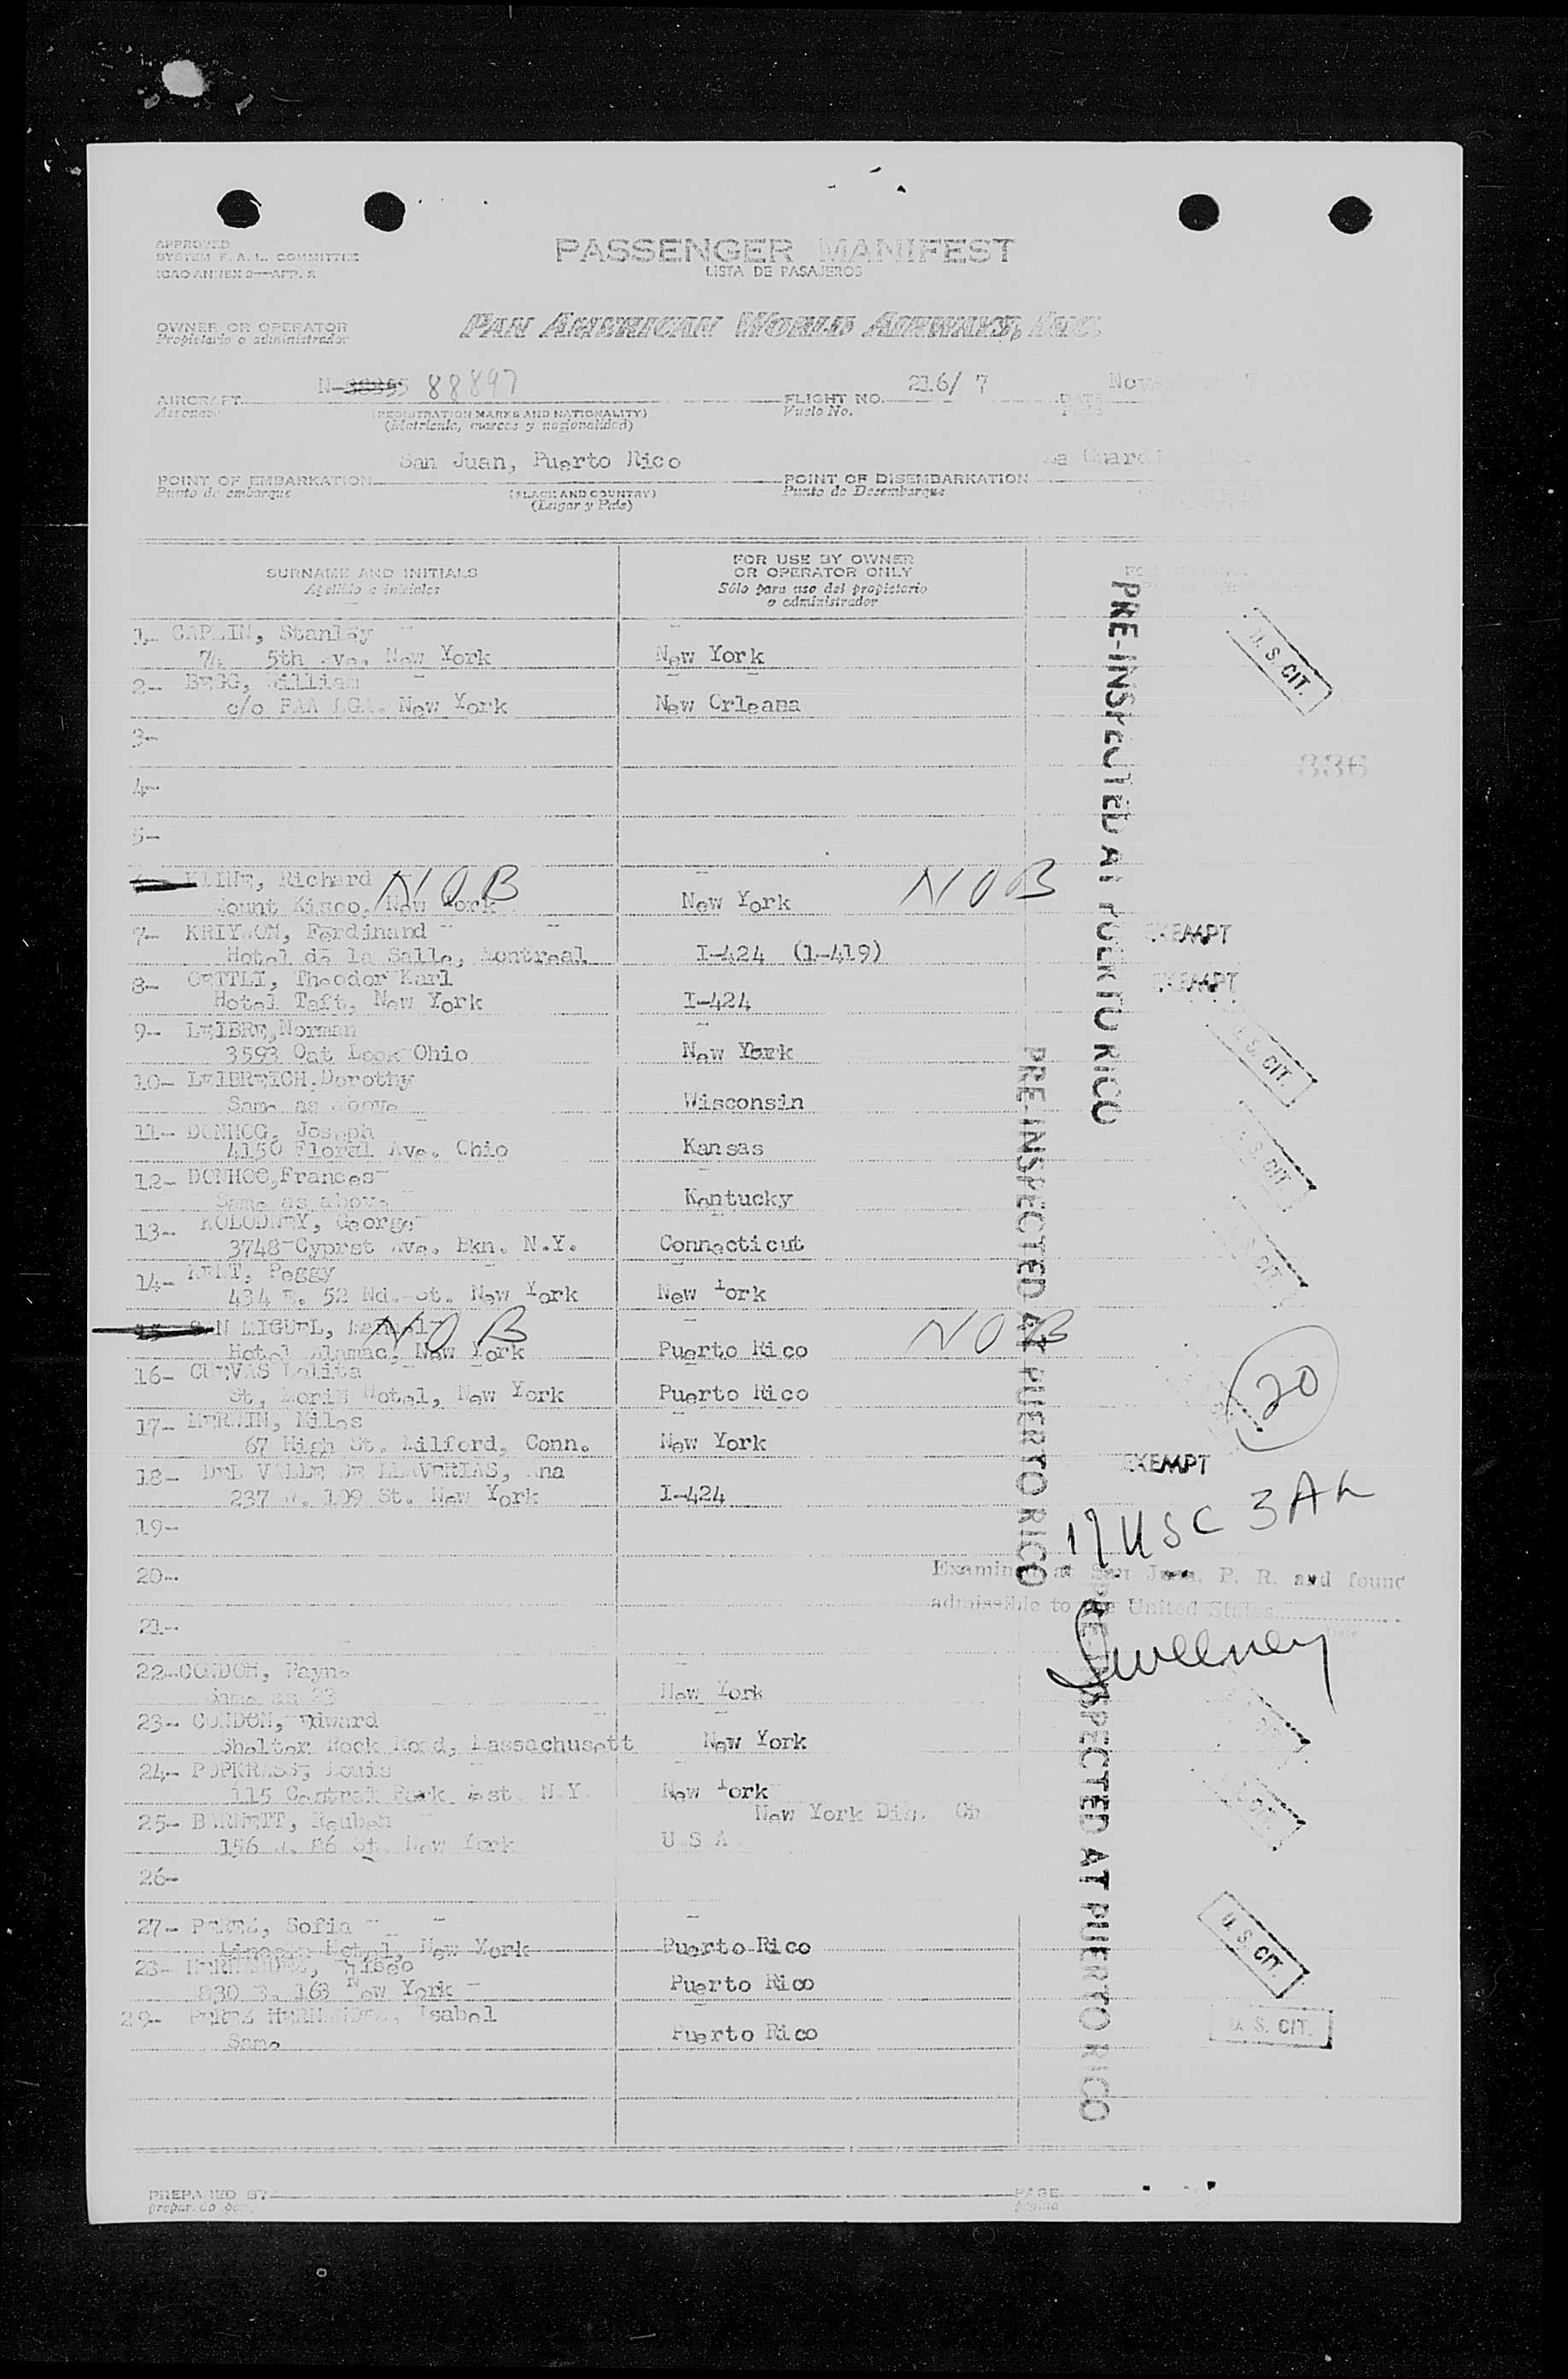 APPROVED
SYSTEM F. A. L. COMMITTEE
ICAO ANNEX 9—APP.
PASSENGER MANIFEST
LISTA DE PASAJEROS
OWNER OR OPERATOR
Propietario o administrador
PAN AMERICAN WORLD AIRWAYS, INC.
N- 88897
216/ 7
AIRCRAFT
Aeronave
(REGISTRATION MARKS AND NATIONALITY)
(Matrícula, marcas y nacionalidad)
FLIGHT NO.
Vuelo No.
San Juan, Puerto Rico
POINT OF EMBARKATION
Punto de embarque
(PLACE AND COUNTRY)
(Lugar y País)
POINT OF DISEMBARKATION
Punto de Desembarque
SURNAME AND INITIALS
Apellido e iniciales
FOR USE BY OWNER
OR OPERATOR ONLY
Sólo para uso del propietario
o administrador
PRE-INSPECTED AT PUERTO RICO
1- CAPLIN, Stanley
5th Ave. New York New York
U. S. CIT.
2- BEGG, William
c/o PAA LGA. New York New Orleans
3-
336
4-
5-
KLINE, Richard NOB
Mount Kisco, New York New York NOB
7- Ferdinand
Hotel de la Salle, Montreal I-424 (1-419) EXEMPT
8- OETTLI, Theodor Karl
Hotel Taft, New York I-424 EXEMPT
9- LEIBRE,Norman
3593 Oat Look Ohio New York
U. S. CIT.
10- LEIBREICH.Dorothy
Same as above Wisconsin
11- DONHOG, Joseph
4150 Floral Ave. Ohio Kansas
U. S. CIT.
12- DONHOG,Frances
Same as above Kentucky
13- KOLODNEY, George
3748 Cyprst Ave. Bkn. N.Y. Connecticut
U. S. CIT.
14- KENT, Peggy
434 E. 52 Nd. St. New York New York
15- SAN MIGUEL, NOB
Hotel Alamac, New York Puerto Rico NOB
PRE-INSPECTED AT PUERTO RICO
16- CUEVAS Lolita
St, Moriz Hotel, New York Puerto Rico
20
17- MERWIN, Miles
67 High St. Milford, Conn. New York
18- DEL VALLE DE LLAVERIAS, Ana
237 W. 109 St. New York I-424 EXEMPT
17 USC 3 AL
19-
20-
Examined at San Juan, P. R. and found
admissible to the United States
21-
Sweeney
22- CONDON, Payne
Same as 23 New York
23- CONDON, Edward
Shelter Rock Road, Massachusett New York
24- Louis
115 Central Park West N.Y. New York
New York Dis.
25- BARNETT, Reuben
156 W. 86 St. New York U S A
26-
PRE-INSPECTED AT PUERTO RICO
27- PEREZ, Sofia
Lincoln Hotel, New York Puerto Rico
U. S. CIT.
28- HERNANDEZ, Eliseo
830 E. 163 New York Puerto Rico
29- PEREZ HERNANDEZ, Isabel
Same Puerto Rico
U. S. CIT.
PREPARED BY
preparado por
PAGE
página